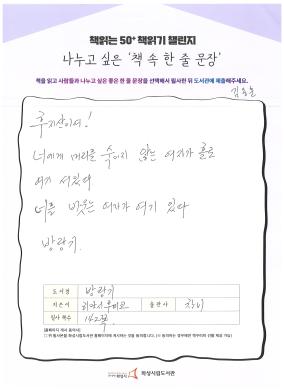 책읽는 50+ 책읽기 챌린지
나누고 싶은 '책 속 한 줄 문장'
책을 읽고 사람들과 나누고 싶은 좋은 한 줄 문장을 선택해서 필사한 뒤 도서관에 제출해주세요.
후지산이여!
너에게 머리를 숙이지 않는 여자가 홀로
여기 서있다
너를 비웃는 여자가 여기 있다
방랑기
도서명 방랑기
지은이 하야시 후미코 출판사 창비
필사 쪽수 142쪽
화성시립도서관